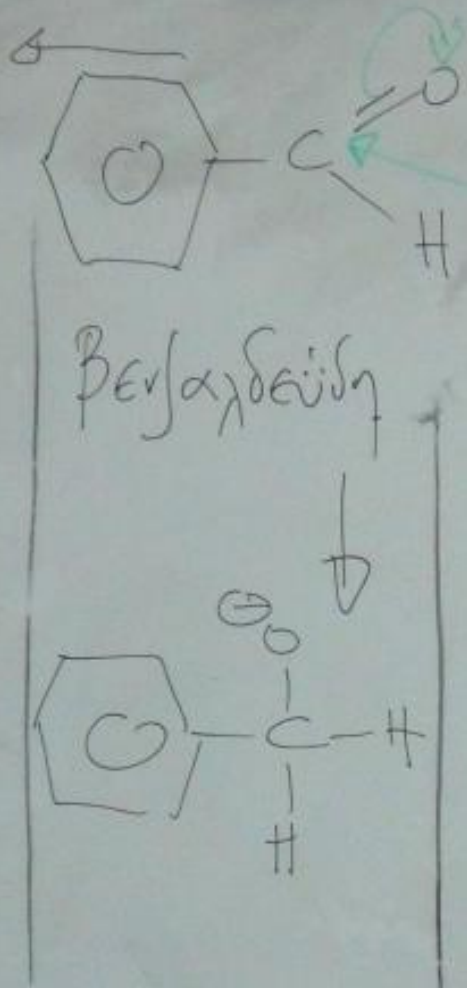 C
O
H
Βενζαλδεΰδη
⊖
O
C H
H